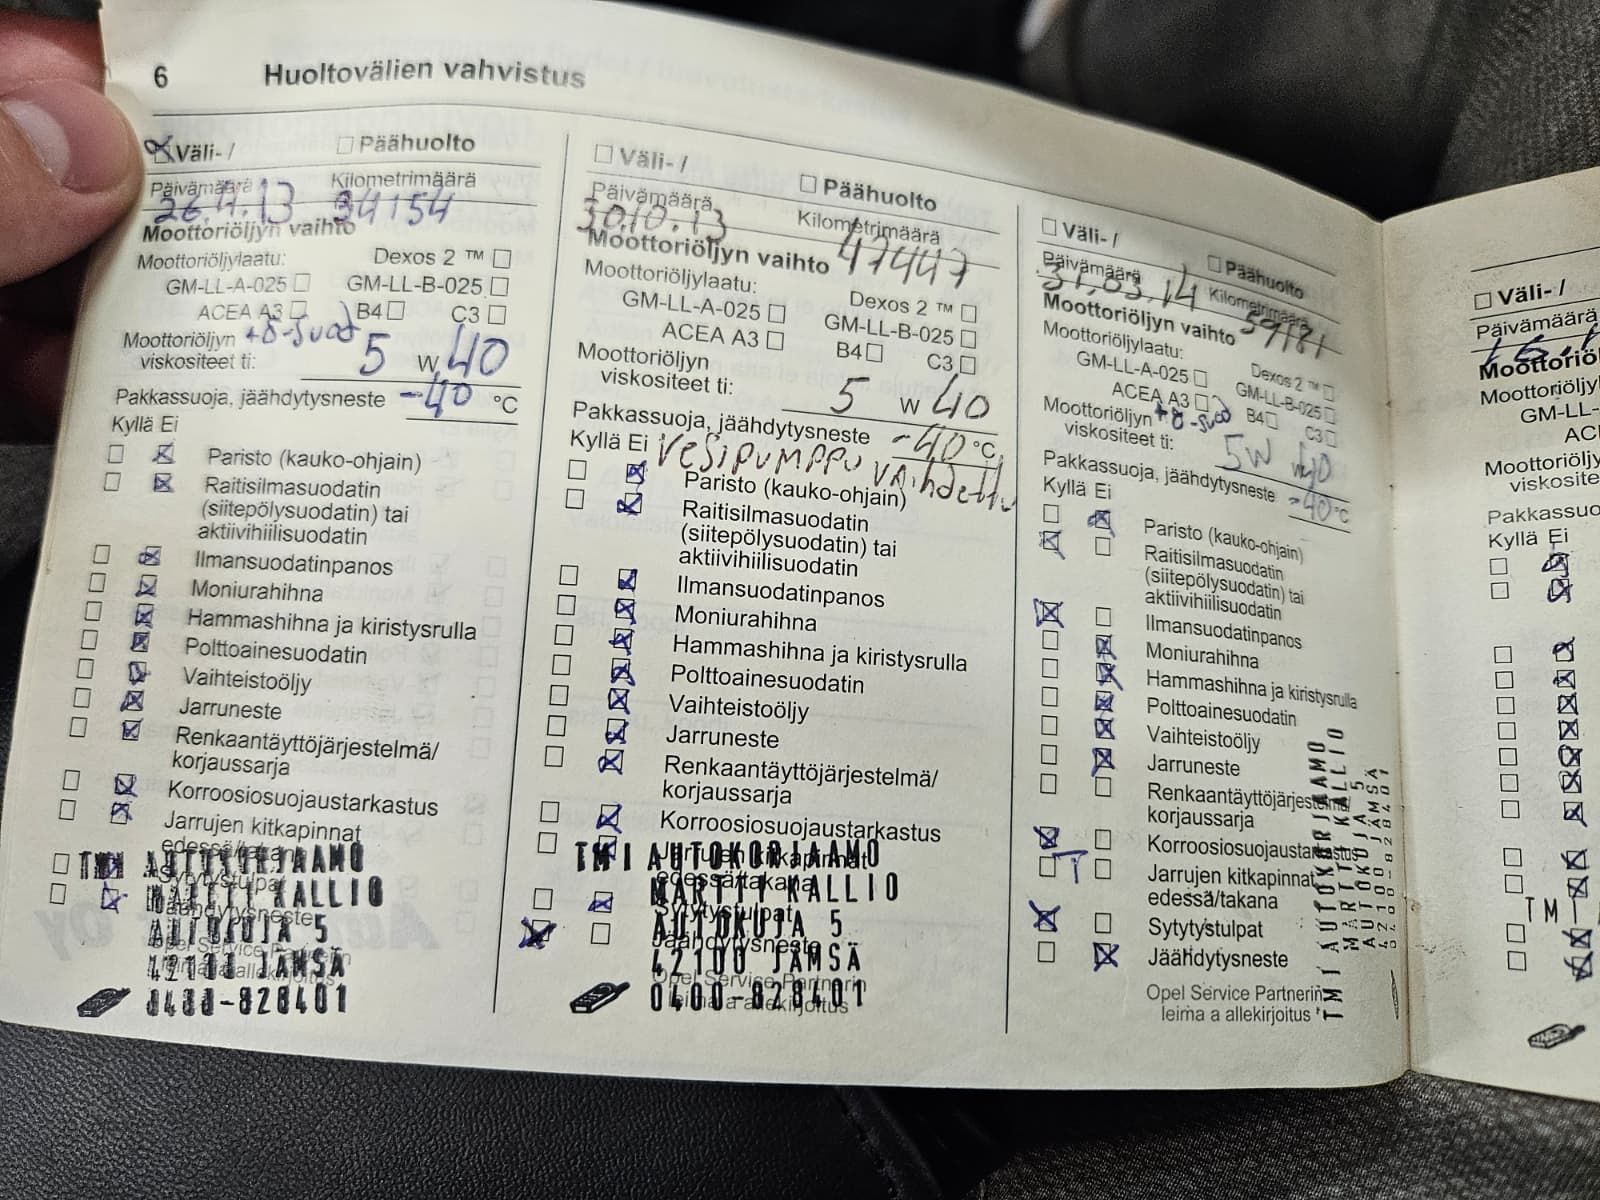 6 Huoltovälien vahvistus
Väli- / Päähuolto
Päivämäärä Kilometrimäärä
26.4.13 34154
Moottoriöljyn vaihto
Moottoriöljylaatu: Dexos 2 ™
GM-LL-A-025 GM-LL-B-025
ACEA A3 B4 C3
Moottoriöljyn +ö-suod
viskositeet ti: 5 W 40
Pakkassuoja, jäähdytysneste -40 °C
Kyllä Ei
Paristo (kauko-ohjain)
Raitisilmasuodatin
(siitepölysuodatin) tai
aktiivihiilisuodatin
Ilmansuodatinpanos
Moniurahihna
Hammashihna ja kiristysrulla
Polttoainesuodatin
Vaihteistoöljy
Jarruneste
Renkaantäyttöjärjestelmä/
korjaussarja
Korroosiosuojaustarkastus
Jarrujen kitkapinnat
edessä/takana
Sytytystulpat
Jäähdytysneste
TMI AUTOKORJAAMO
MARTTI KALLIO
AUTOKUJA 5
42100 JÄMSÄ
0400-828401
Väli- / Päähuolto
Päivämäärä Kilometrimäärä
30.10.13 47447
Moottoriöljyn vaihto
Moottoriöljylaatu: Dexos 2 ™
GM-LL-A-025 GM-LL-B-025
ACEA A3 B4 C3
Moottoriöljyn
viskositeet ti: 5 W 40
Pakkassuoja, jäähdytysneste -40 °C
Kyllä Ei Vesipumppu vaihdettu
Paristo (kauko-ohjain)
Raitisilmasuodatin
(siitepölysuodatin) tai
aktiivihiilisuodatin
Ilmansuodatinpanos
Moniurahihna
Hammashihna ja kiristysrulla
Polttoainesuodatin
Vaihteistoöljy
Jarruneste
Renkaantäyttöjärjestelmä/
korjaussarja
Korroosiosuojaustarkastus
Jarrujen kitkapinnat
edessä/takana
Sytytystulpat
Jäähdytysneste
Opel Service Partnerin
leima a allekirjoitus
TMI AUTOKORJAAMO
MARTTI KALLIO
AUTOKUJA 5
42100 JÄMSÄ
0400-828401
Väli- / Päähuolto
Päivämäärä Kilometrimäärä
31.03.14 59181
Moottoriöljyn vaihto
Moottoriöljylaatu: Dexos 2 ™
GM-LL-A-025 GM-LL-B-025
ACEA A3 B4 C3
Moottoriöljyn +ö-suod
viskositeet ti: 5W 40
Pakkassuoja, jäähdytysneste -40 °C
Kyllä Ei
Paristo (kauko-ohjain)
Raitisilmasuodatin
(siitepölysuodatin) tai
aktiivihiilisuodatin
Ilmansuodatinpanos
Moniurahihna
Hammashihna ja kiristysrulla
Polttoainesuodatin
Vaihteistoöljy
Jarruneste
Renkaantäyttöjärjestelmä/
korjaussarja
Korroosiosuojaustarkastus
Jarrujen kitkapinnat
edessä/takana
Sytytystulpat
Jäähdytysneste
Opel Service Partnerin
leima a allekirjoitus
TMI AUTOKORJAAMO
MARTTI KALLIO
AUTOKUJA 5
42100 JÄMSÄ
0400-828401
Väli- /
Päivämäärä
Moottoriöl
Moottoriöljy
GM-LL-
AC
Moottoriöljy
viskosite
Pakkassuo
Kyllä Ei
TMI